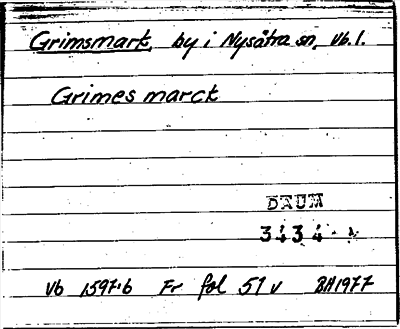 Grimsmark, by i Nysätra sn, Vb.l.
Grimes marck
DAUM
3434
Vb 1597:6 Fr fol 51 v BH1977